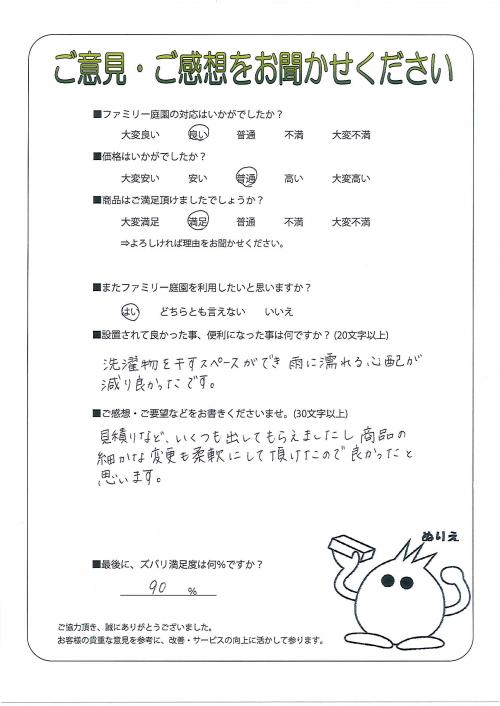 ご意見・ご感想をお聞かせください
■ファミリー庭園の対応はいかがでしたか？
大変良い 良い 普通 不満 大変不満
■価格はいかがでしたか？
大変安い 安い 普通 高い 大変高い
■商品はご満足頂けましたでしょうか？
大変満足 満足 普通 不満 大変不満
⇒よろしければ理由をお聞かせください。
■またファミリー庭園を利用したいと思いますか？
はい どちらとも言えない いいえ
■設置されて良かった事、便利になった事は何ですか？(20文字以上)
洗濯物を干すスペースができ 雨に濡れる心配が
減り良かったです。
■ご感想・ご要望などをお書きくださいませ。(30文字以上)
見積りなど、いくつも出してもらえましたし 商品の
細かな変更も柔軟にして頂けたので良かったと
思います。
ぬりえ
■最後に、ズバリ満足度は何％ですか？
90 ％
ご協力頂き、誠にありがとうございました。
お客様の貴重な意見を参考に、改善・サービスの向上に活かして参ります。